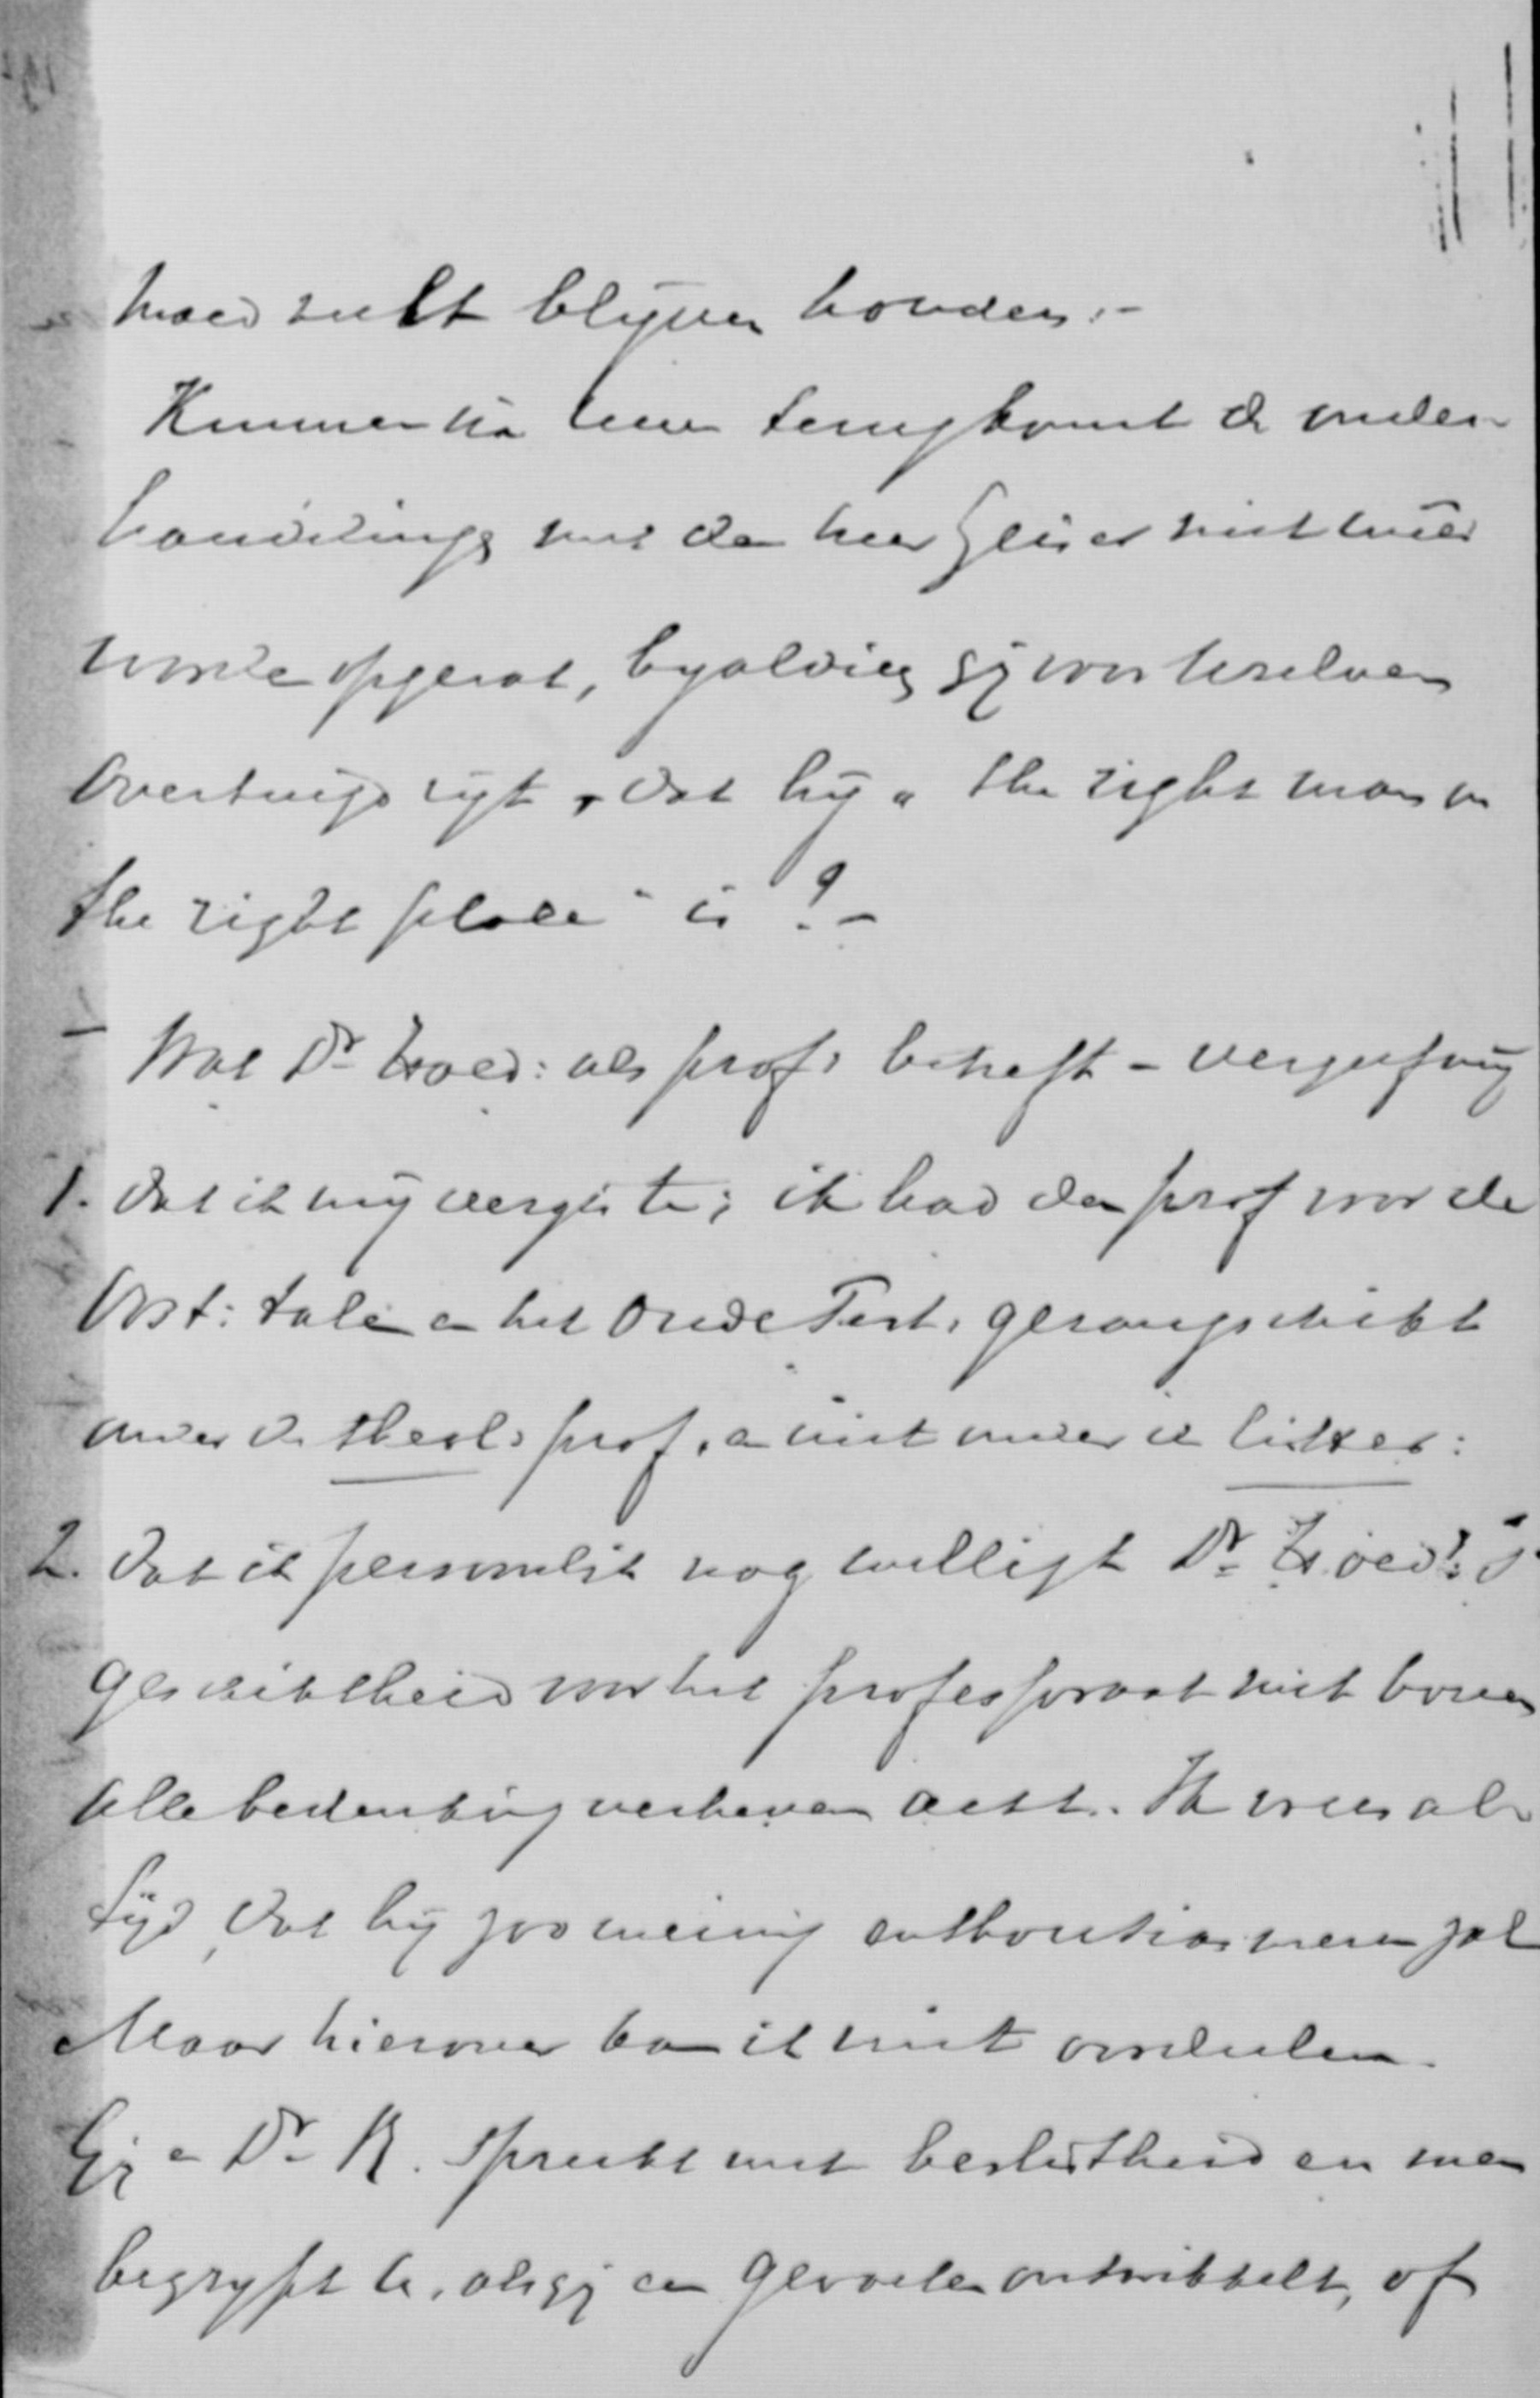 moed zult blijven houden.-
Kunnen na uwe terugkomst de onder-
handelings met den heer niet weer
worden opgevat, byaldien gij voor uzelven
overtuigd zyt, dat hij "the right man in
the right place" is?-
- Wat Dr Hoed: als prof. betreft - vergeef mij
1. dat ik mij vergiste; ik had den prof voor de
Oost: talen en het Oude Test. gerangschikt
onder de theol: prof. en niet onder de litter:
2. dat ik personlijk nog wellight Dr Hoed:'s
geschiktheid voor het professoraat niet boven
alle bedenking verheven acht. Ik vrees al-
tijd, dat hij zoo weinig enthousiasmeren zal
Maar hierover kan ik niet oordeelen.
Gij en Dr K. spreekt met beslistheid en men
begrypt U, als gij een gevoelen ontwikkelt, of